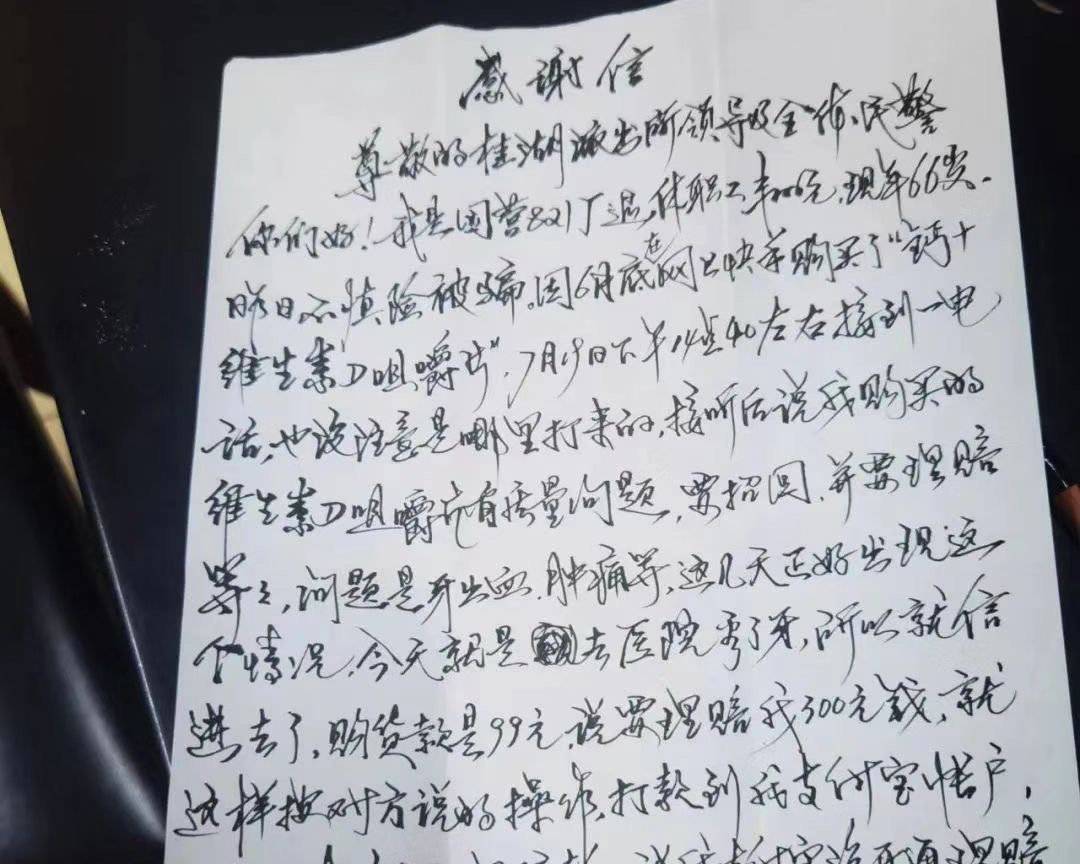 感谢信
尊敬的桂湖派出所领导及全体民警
你们好！我是国营821厂退休职工,现年66岁.
昨日不慎险被骗。因6月底在网上快手购买了“钙十
维生素D咀嚼片”,7月9日下午14点40左右接到一电
话,也没注意是哪里打来的,接听后说我购买的
维生素D咀嚼片有质量问题,要招回,并要理赔
等等,问题是牙出血、肿痛等,这几天正好出现这
个情况,今天就是去医院看了牙,所以就信
进去了,购货款是99元,说要理赔我300元钱,就
这样按对方说的操作,打款到我支付宝帐户,